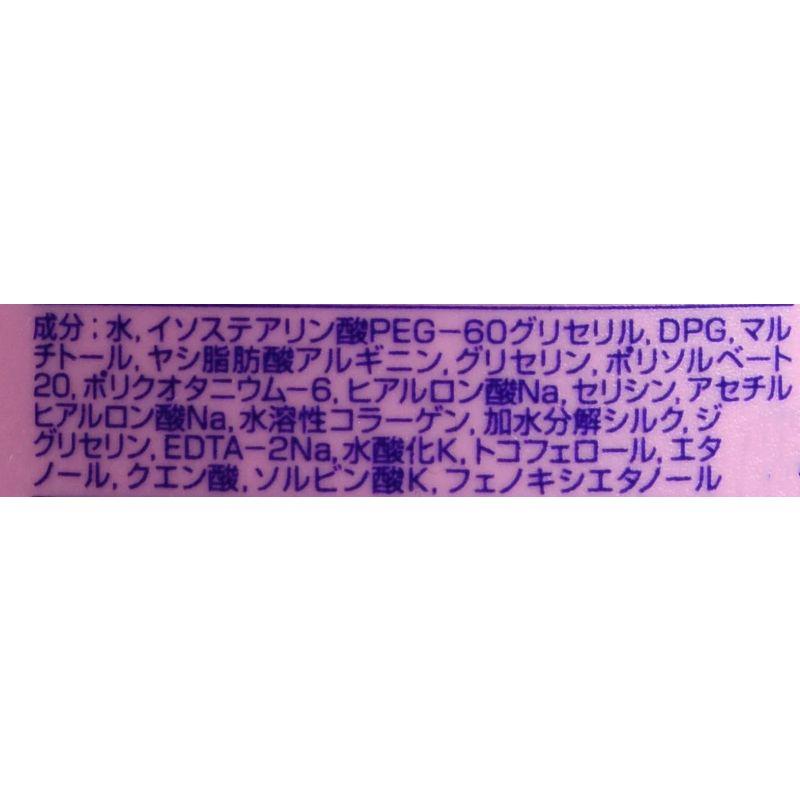 成分：水, イソステアリン酸PEG−60グリセリル, DPG, マル
チトール, ヤシ脂肪酸アルギニン, グリセリン, ポリソルベート
20, ポリクオタニウム−6, ヒアルロン酸Na, セリシン, アセチル
ヒアルロン酸Na, 水溶性コラーゲン, 加水分解シルク, ジ
グリセリン, EDTA−2Na, 水酸化K, トコフェロール, エタ
ノール, クエン酸, ソルビン酸K, フェノキシエタノール